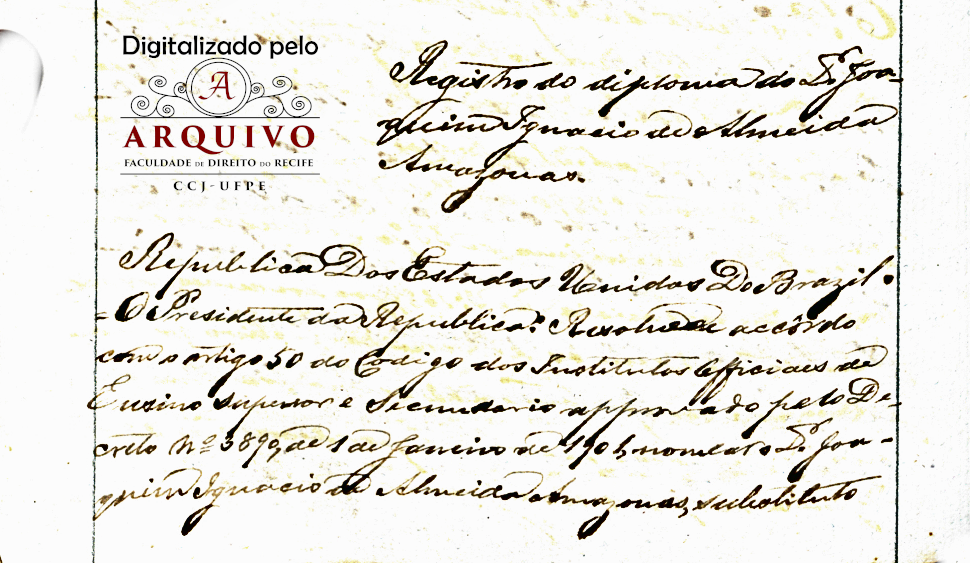 Digitalizado pelo
A
ARQUIVO
FACULDADE DE DIREITO DO RECIFE
CCJ-UFPE
Registro do diploma do Dr. Joa-
quim Ignacio de Almeida
Amazonas.
Republica Dos Estados Unidos Do Brazil.
= O Presidente da Republica: Resolve de accôrdo
com o artigo 50 do Codigo dos Institutos Officiaes de
Ensino superior e Secundario approvado pelo De-
creto Nº 3890, de 1 de Janeiro de 1901, nomear o Dr. Joa-
quim Ignacio de Almeida Amazonas, substituto